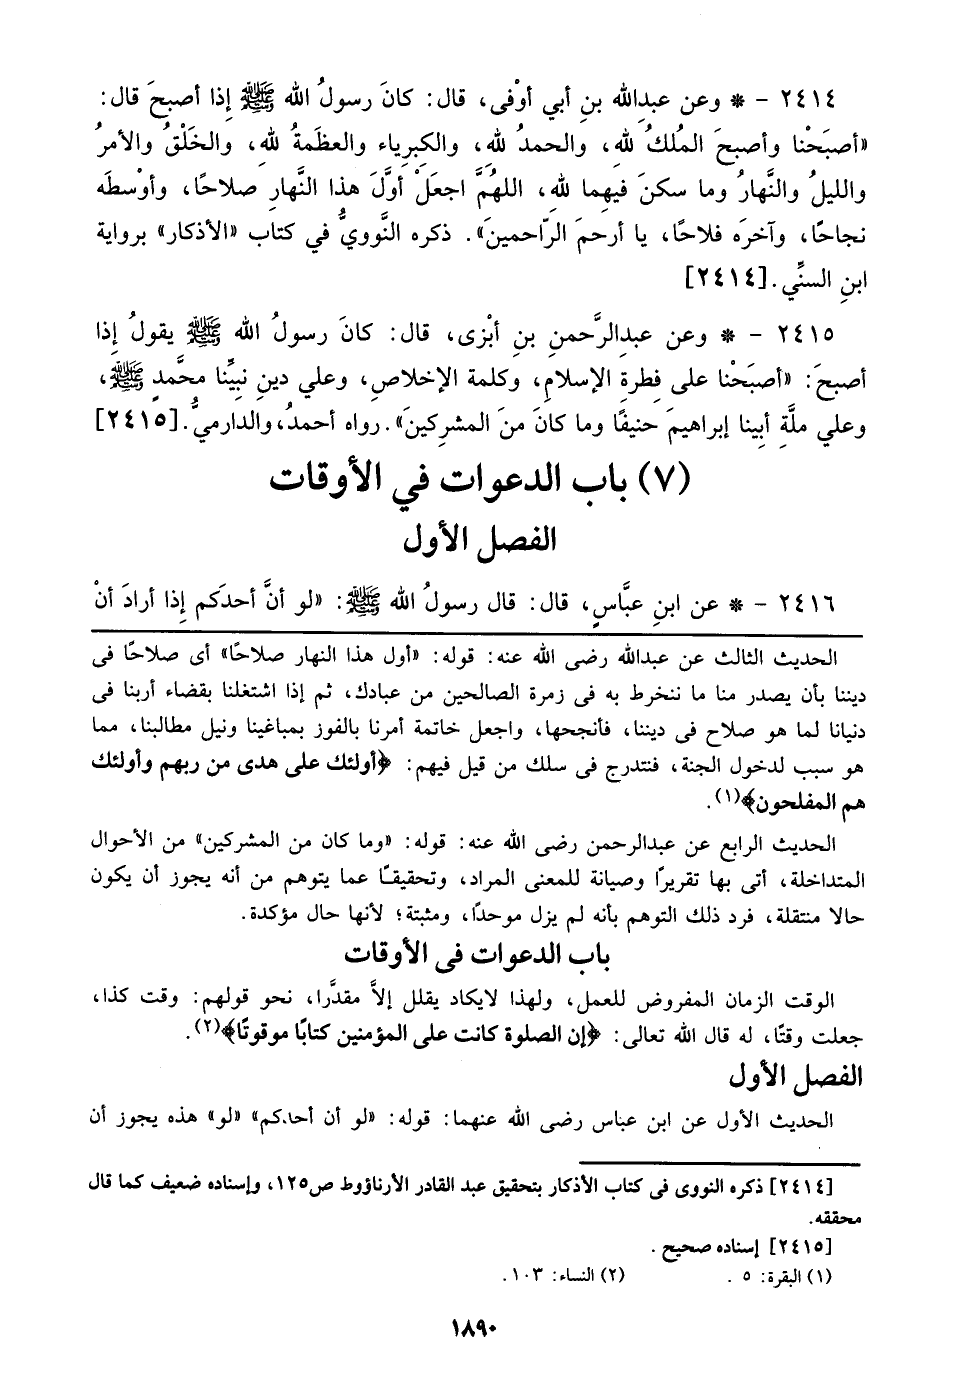 ٢٤١٤ – * وعن عبدالله بنِ أبي أوْفى، قال: كانَ رسولُ الله ﷺ إذا أصبحَ قال:
«أصبَحْنا وأصبحَ الملكُ للهِ، والحمدُ للهِ، والكبرياء والعظَمةُ للهِ، والخَلْقُ والأمرُ
والليلُ والنَّهارُ وما سكنَ فيهما للهِ، اللهُمَّ اجعَلْ أوَّلَ هذا النَّهارِ صلاحًا، وأوْسطَه
نجاحًا، وآخرَه فلاحًا، يا أرحمَ الرّاحمينَ». ذكره النَّوويُّ في كتاب «الأذكار» برواية
ابنِ السنّي.[٢٤١٤]
٢٤١٥ – * وعن عبدِالرَّحمنِ بنِ أبْزى، قال: كانَ رسولُ الله ﷺ يقولُ إذا
أصبحَ: «أصبَحْنا على فِطرةِ الإسلامِ، وكلمة الإخلاصِ، وعلي دينِ نبيِّنا محمَّدٍ ﷺ،
وعلي ملَّةِ أبينا إبراهيمَ حنيفًا وما كانَ منَ المشركينَ». رواه أحمدُ، والدارميُّ.[٢٤١٥]
(٧) باب الدعوات في الأوقات
الفصل الأول
٢٤١٦ – * عن ابنِ عبَّاسٍ، قال: قال رسولُ الله ﷺ: «لو أنَّ أحدَكم إذا أرادَ أنْ
الحديث الثالث عن عبدالله رضى الله عنه: قوله: «أول هذا النهار صلاحًا» أى صلاحًا فى
ديننا بأن يصدر منا ما ننخرط به فى زمرة الصالحين من عبادك، ثم إذا اشتغلنا بقضاء أربنا فى
دنيانا لما هو صلاح فى ديننا، فأنجحها، واجعل خاتمة أمرنا بالفوز بمباغينا ونيل مطالبنا، مما
هو سبب لدخول الجنة، فنتدرج فى سلك من قيل فيهم: ﴿أولئك على هدى من ربهم وأولئك
هم المفلحون﴾(١).
الحديث الرابع عن عبدالرحمن رضى الله عنه: قوله: «وما كان من المشركين» من الأحوال
المتداخلة، أتى بها تقريرًا وصيانة للمعنى المراد، وتحقيقًا عما يتوهم من أنه يجوز أن يكون
حالا منتقلة، فرد ذلك التوهم بأنه لم يزل موحدًا، ومثبتة؛ لأنها حال مؤكدة.
باب الدعوات فى الأوقات
الوقت الزمان المفروض للعمل، ولهذا لايكاد يقلل إلاَّ مقدَّرا، نحو قولهم: وقت كذا،
جعلت وقتًا، له قال الله تعالى: ﴿إن الصلوة كانت على المؤمنين كتابًا موقوتًا﴾(٢).
الفصل الأول
الحديث الأول عن ابن عباس رضى الله عنهما: قوله: «لو أن أحدكم» «لو» هذه يجوز أن
[٢٤١٤] ذكره النووى فى كتاب الأذكار بتحقيق عبد القادر الأرناؤوط ص١٢٥، وإسناده ضعيف كما قال
محققه.
[٢٤١٥] إسناده صحيح .
(١) البقرة: ٥ . (٢) النساء: ١٠٣.
١٨٩٠